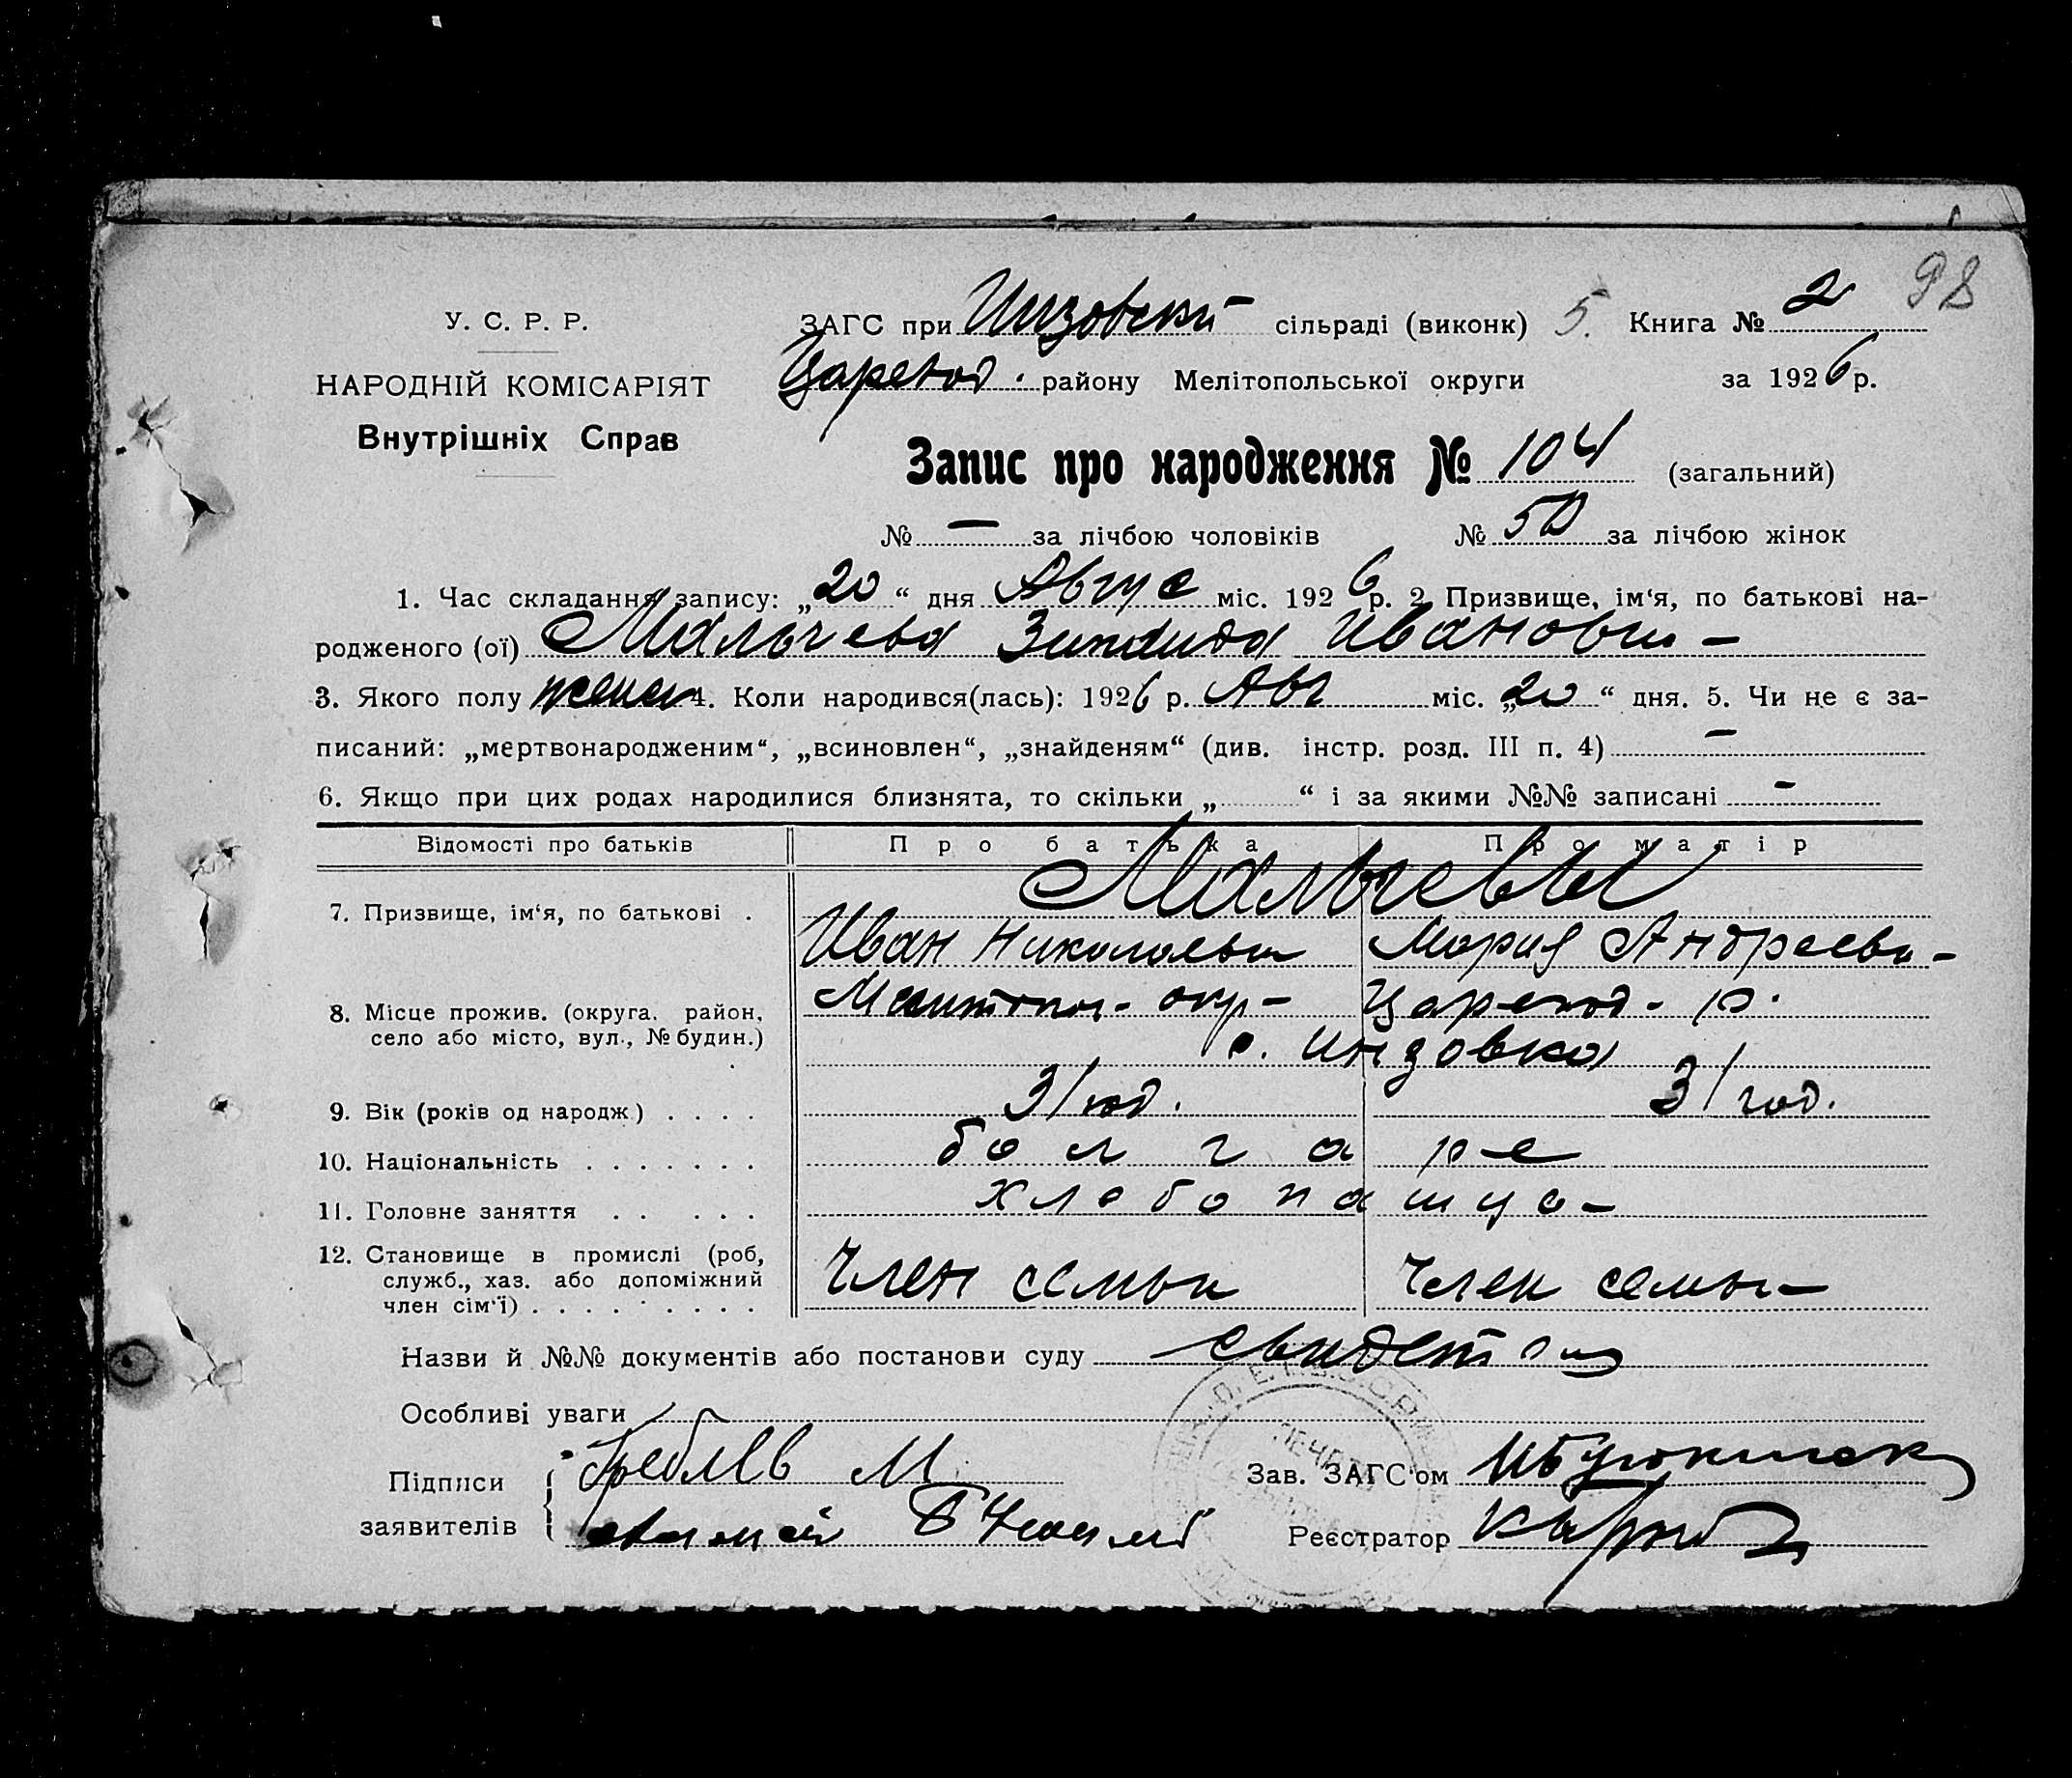 98
У. С. Р. Р.
НАРОДНІЙ КОМІСАРІЯТ
Внутрішніх Справ
ЗАГС при Инзовски сільраді (виконк) 5. Книга № 2
Царевод. району Мелітопольської округи за 1926 р.
Запис про народження № 104 (загальний)
№ — за лічбою чоловіків № 50 за лічбою жінок
1. Час складання запису: „20“ дня Авгус міс. 1926 р. 2 Призвище, ім‘я, по батькові на-
родженого (ої) Мальчева Зинаида Ивановн-
3. Якого полу женс 4. Коли народився(лась): 1926 р. Авг міс. „20“ дня. 5. Чи не є за-
писаний: „мертвонародженим“, „всиновлен“, „знайденям“ (див. інстр. розд. III п. 4) —
6. Якщо при цих родах народилися близнята, то скільки „ “ і за якими №№ записані -
Відомості про батьків Про батька Про матір
Мальчевы
7. Призвище, ім‘я, по батькові . Иван Николаеви Мария Андреевн-
8. Місце прожив. (округа, район, село або місто, вул., № будин.) Мелитопол- окр- Царевод- р.
с. Инзовка
9. Вік (років од народж) . . . . 31 год. 31 год.
10. Національність . . . . . . . болгаре
11. Головне заняття . . . . . хлебопашц-
12. Становище в промислі (роб, служб., хаз. або допоміжний член сім‘ї) . . . . . . . . . Член семьи Член семьи
Назви й №№ документів або постанови суду свидет
Особливі уваги
Підписи заявителів М
Зав. ЗАГС‘ом
Реєстратор
ПЕЧАТЬ